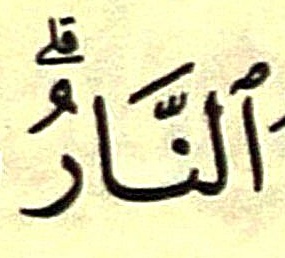 ٱلنَّارُۗ